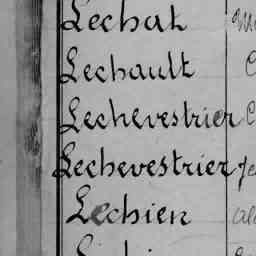 Lechat
Lechault
Lechevestrier
Lechevestrier
Lechien